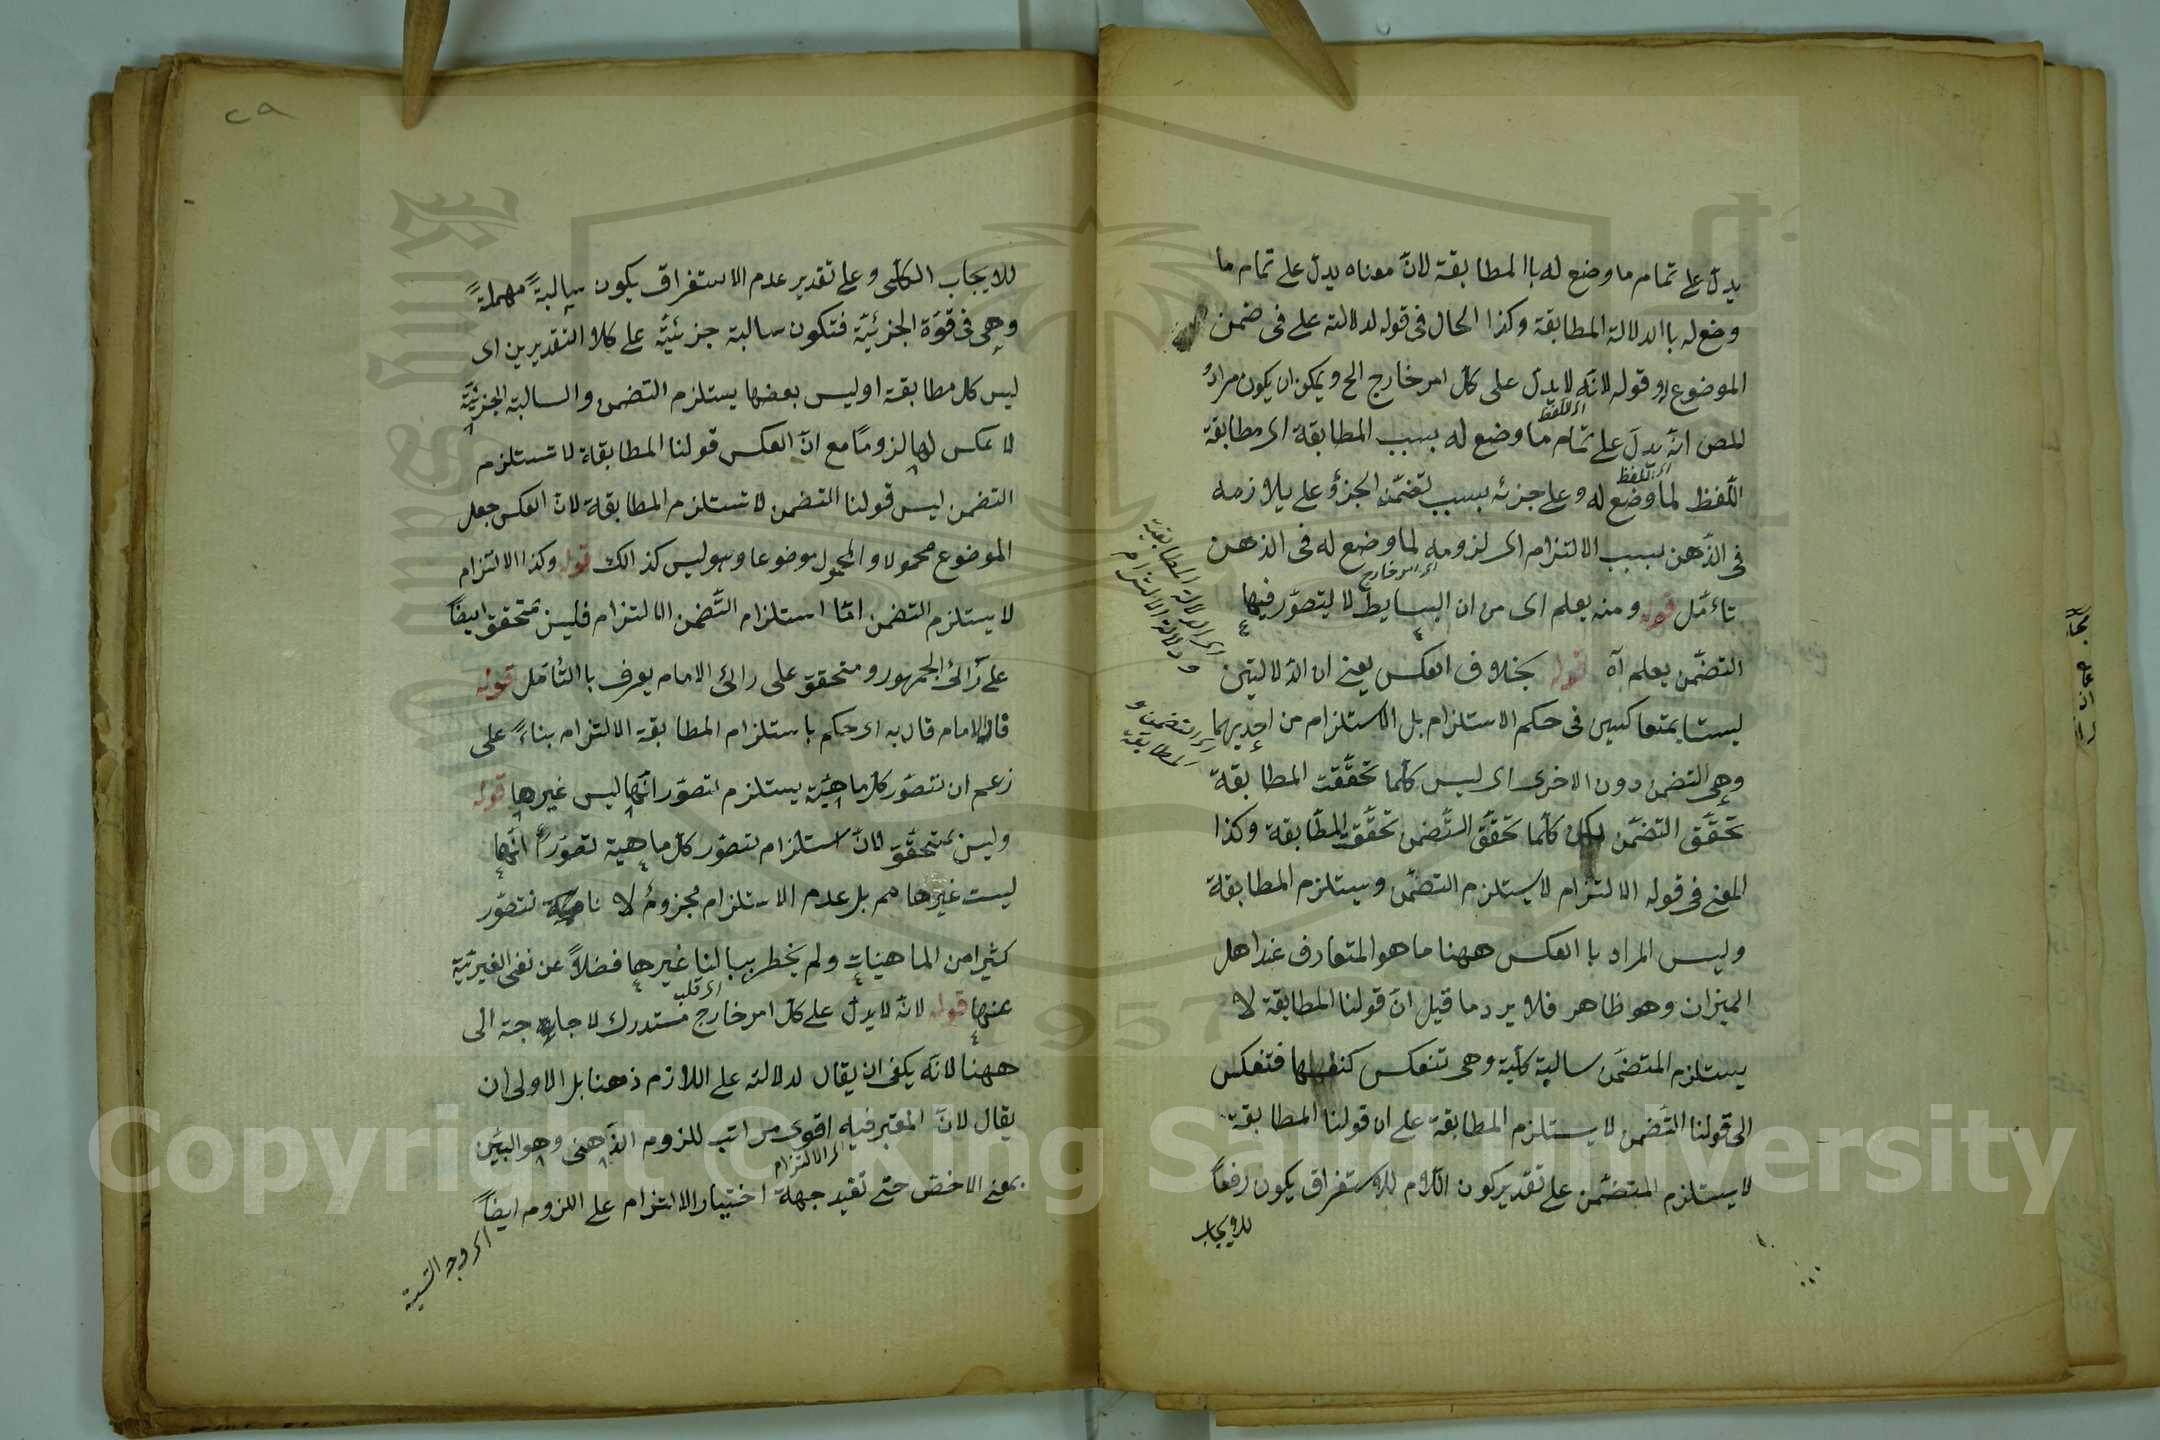 يدل على تمام ما وضع له باالمطابقة لانّ معناه يدل على تمام ما
وضع له باالدلالة المطابقة وكذا الحال فى قوله لدلالته على فى ضمن
الموضوع له وقوله لانّه لا يدلّ على كل امر خارج الخ ويمكن ان يكون مراد
المص انّه يدلّ على تمام ما وضع له بسبب المطابقة اى مطابقة
اى اللفظ
اللّفظ لما وضع له وعلى جزئه بسبب تضمّن الجزؤ على يلازمه
اى اللفظ
فى الذّهن بسبب الالتزام اى لزومه لما وضع له فى الذهن
اى امر خارج
تاءمّل قوله ومنه يعلم اى من ان البسايط لا يتصوّر فيها
التضمّن يعلم آه قوله بخلاف العكس يعنى ان الدّلالتين
اى الدلالة المطابقية
ودلالة الالتزام
ليستا بمتعاكسين فى حكم الاستلزام بل الاستلزام من احديهما
اى التضمن و
المطابقة
وهى التضمن دون الاخرى اى ليس كلّما تحقّقت المطابقة
تحقّق التضمّن بل كلّما تحقّق التّضمن تحقّقت المطابقة وكذا
المعنى فى قوله الالتزام لا يستلزم التضمّن ويستلزم المطابقة
وليس المراد باالعكس ههنا ما هو المتعارف عند اهل
الميزان وهو ظاهر فلا يرد ما قيل انّ قولنا المطابقة لا
يستلزم التضمّن سالبة كلّية وهى تنعكس كنفسها فتنعكس
الى قولنا التّضمن لا يستلزم المطابقة على ان قولنا المطابقة
لا يستلزم التضمّن على تقدير كون اللام للاستغراق يكون رفعاً
للايجاب
٢٩
للايجاب الكلّى وعلى تقدير عدم الاستغراق يكون سالبةً مهملةً
وهى فى قوّة الجزئيّة فتكون سالبة جزئيّة على كلا التقديرين اى
ليس كل مطابقة او ليس بعضها يستلزم التضمن والسالبة الجزئيّة
لا عكس لها لزومًا مع انّ العكس قولنا المطابقاة لا تستلزم
التضمن ليس قولنا التضمن لا تستلزم المطابقة لانّ العكس جعل
الموضوع محمولا والمحمول موضوعا وهو ليس كذالك قوله وكذا الالتزام
لا يستلزم التضمن امّا استلزام التّضمن الالتزام فليس متحقق ايضاً
على رأئ الجمهور ومتحقق على رائ الامام يعرف باالتأمّل قوله
قال الامام قال به اى حكم باستلزام المطابقة الالتزام بناءً على
زعم ان تتصوّر كل ماهيّة يستلزم تصوّر انّها ليس غيرها قوله
وليس بمتحقّق لانّ استلزام تصوّر كل ماهية تصوّر انّها
ليست غيرها مم بل عدم الاستلزام مجزوم لا نا نتصوّر
كثيرا من الماهيات ولم يخطر ببالنا غيرها فضلاً عن نفى الغيريّة
اى قلب
عنها قوله لانّه لا يدلّ على كل امر خارج مستدرك لا حاجة الى
ههنا لانّه يكفى ان يقال لدلالته على اللازم ذهنا بل الاولى ان
يقال لانّ المعتبر فيه اقوى مراتب للزوم الذّهنى وهو البيّن
اى الالتزام
بمعنى الاخصّ حتى تفيد جهة اختيار الالتزام على اللزوم ايضاً
اى وجه التسمية
Copyright © King Saud University
1957